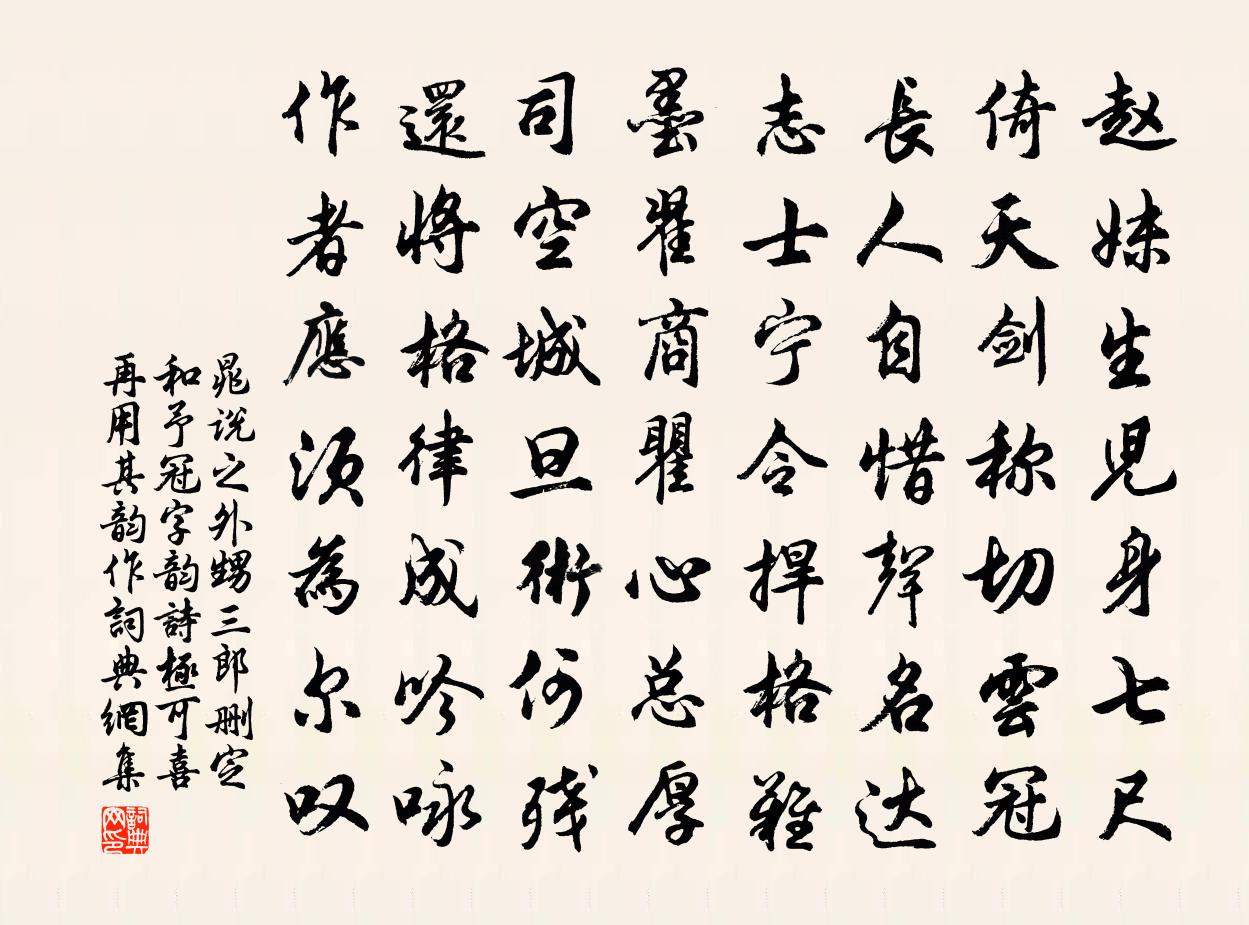 赵妹生児身七尺
倚天剑称切雲冠
長人自惜聲名达
志士宁令捍格難
墨翟商瞿心总厚
司空城旦術何残
還將格律成吟咏
作者應須為尔叹
晁说之外甥三郎删定
和予冠字韵詩極可喜
再用其韵作詞典網集
詞典网印